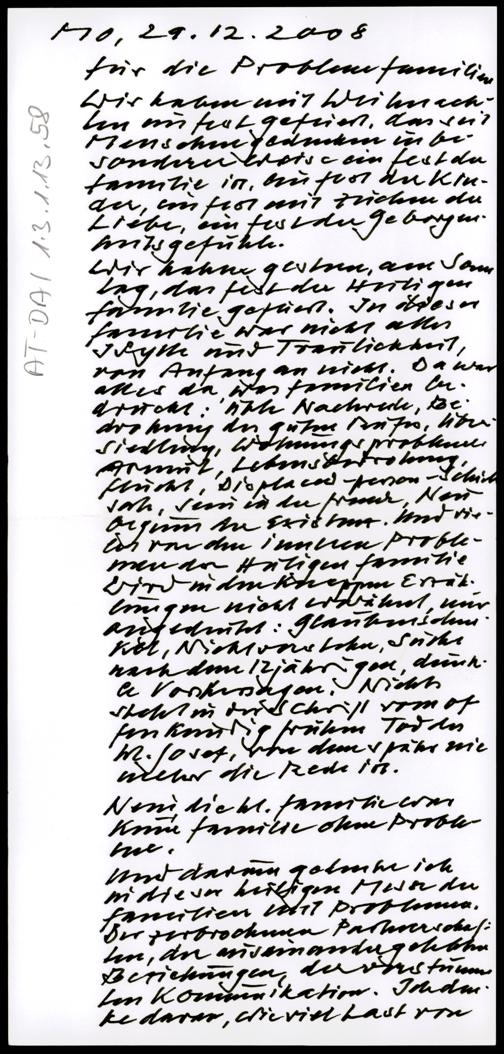 Mo, 29.12.2008
für die Problemfamilien
Wir haben mit Weihnach-
ten ein Fest gefeiert, das seit
Menschengedenken in be-
sonderer Weise ein Fest der
Familie ist, ein Fest der Kin-
der, ein Fest mit Zeichen der
Liebe, ein Fest der Geborgen-
heitsgefühle.
Wir haben gestern, am Sonn
tag, das Fest der Heiligen
Familie gefeiert. In dieser
Familie war nicht alles
Idylle und Traulichkeit,
von Anfang an nicht. Da war
alles da, was Familien be-
drückt: üble Nachrede, Be-
drohung des guten Rufes, Über
siedlung, Wohnungsprobleme
Armut, Lebensbedrohung,
Flucht, Displaced-person-Schick
sal, sein in der Fremde, Neu
beginn der Existenz. Und vie-
les von den inneren Proble-
men der Heiligen Familie
wird in den knappen Erzäh-
lungen nicht erwähnt, nur
angedeutet: Glaubensdun-
kel, Nichtverstehen, Suche
nach dem 12jährigen, dunk-
le Vorhersagen. Nichts
steht in der Schrift vom of
fenkundig frühen Tod des
hl. Josef, von dem später nie
mehr die Rede ist.
Nein die hl. Familie war
keine Familie ohne Proble-
me.
Und darum gedenke ich
in dieser heiligen Messe der
Familien mit Problemen.
Der zerbrochenen Partnerschaf-
ten, der auseinandergelebten
Beziehungen, der verstumm
ten Kommunikation. Ich den-
ke daran, wie viel Last von
AT-DAI 1.3.1.13.58